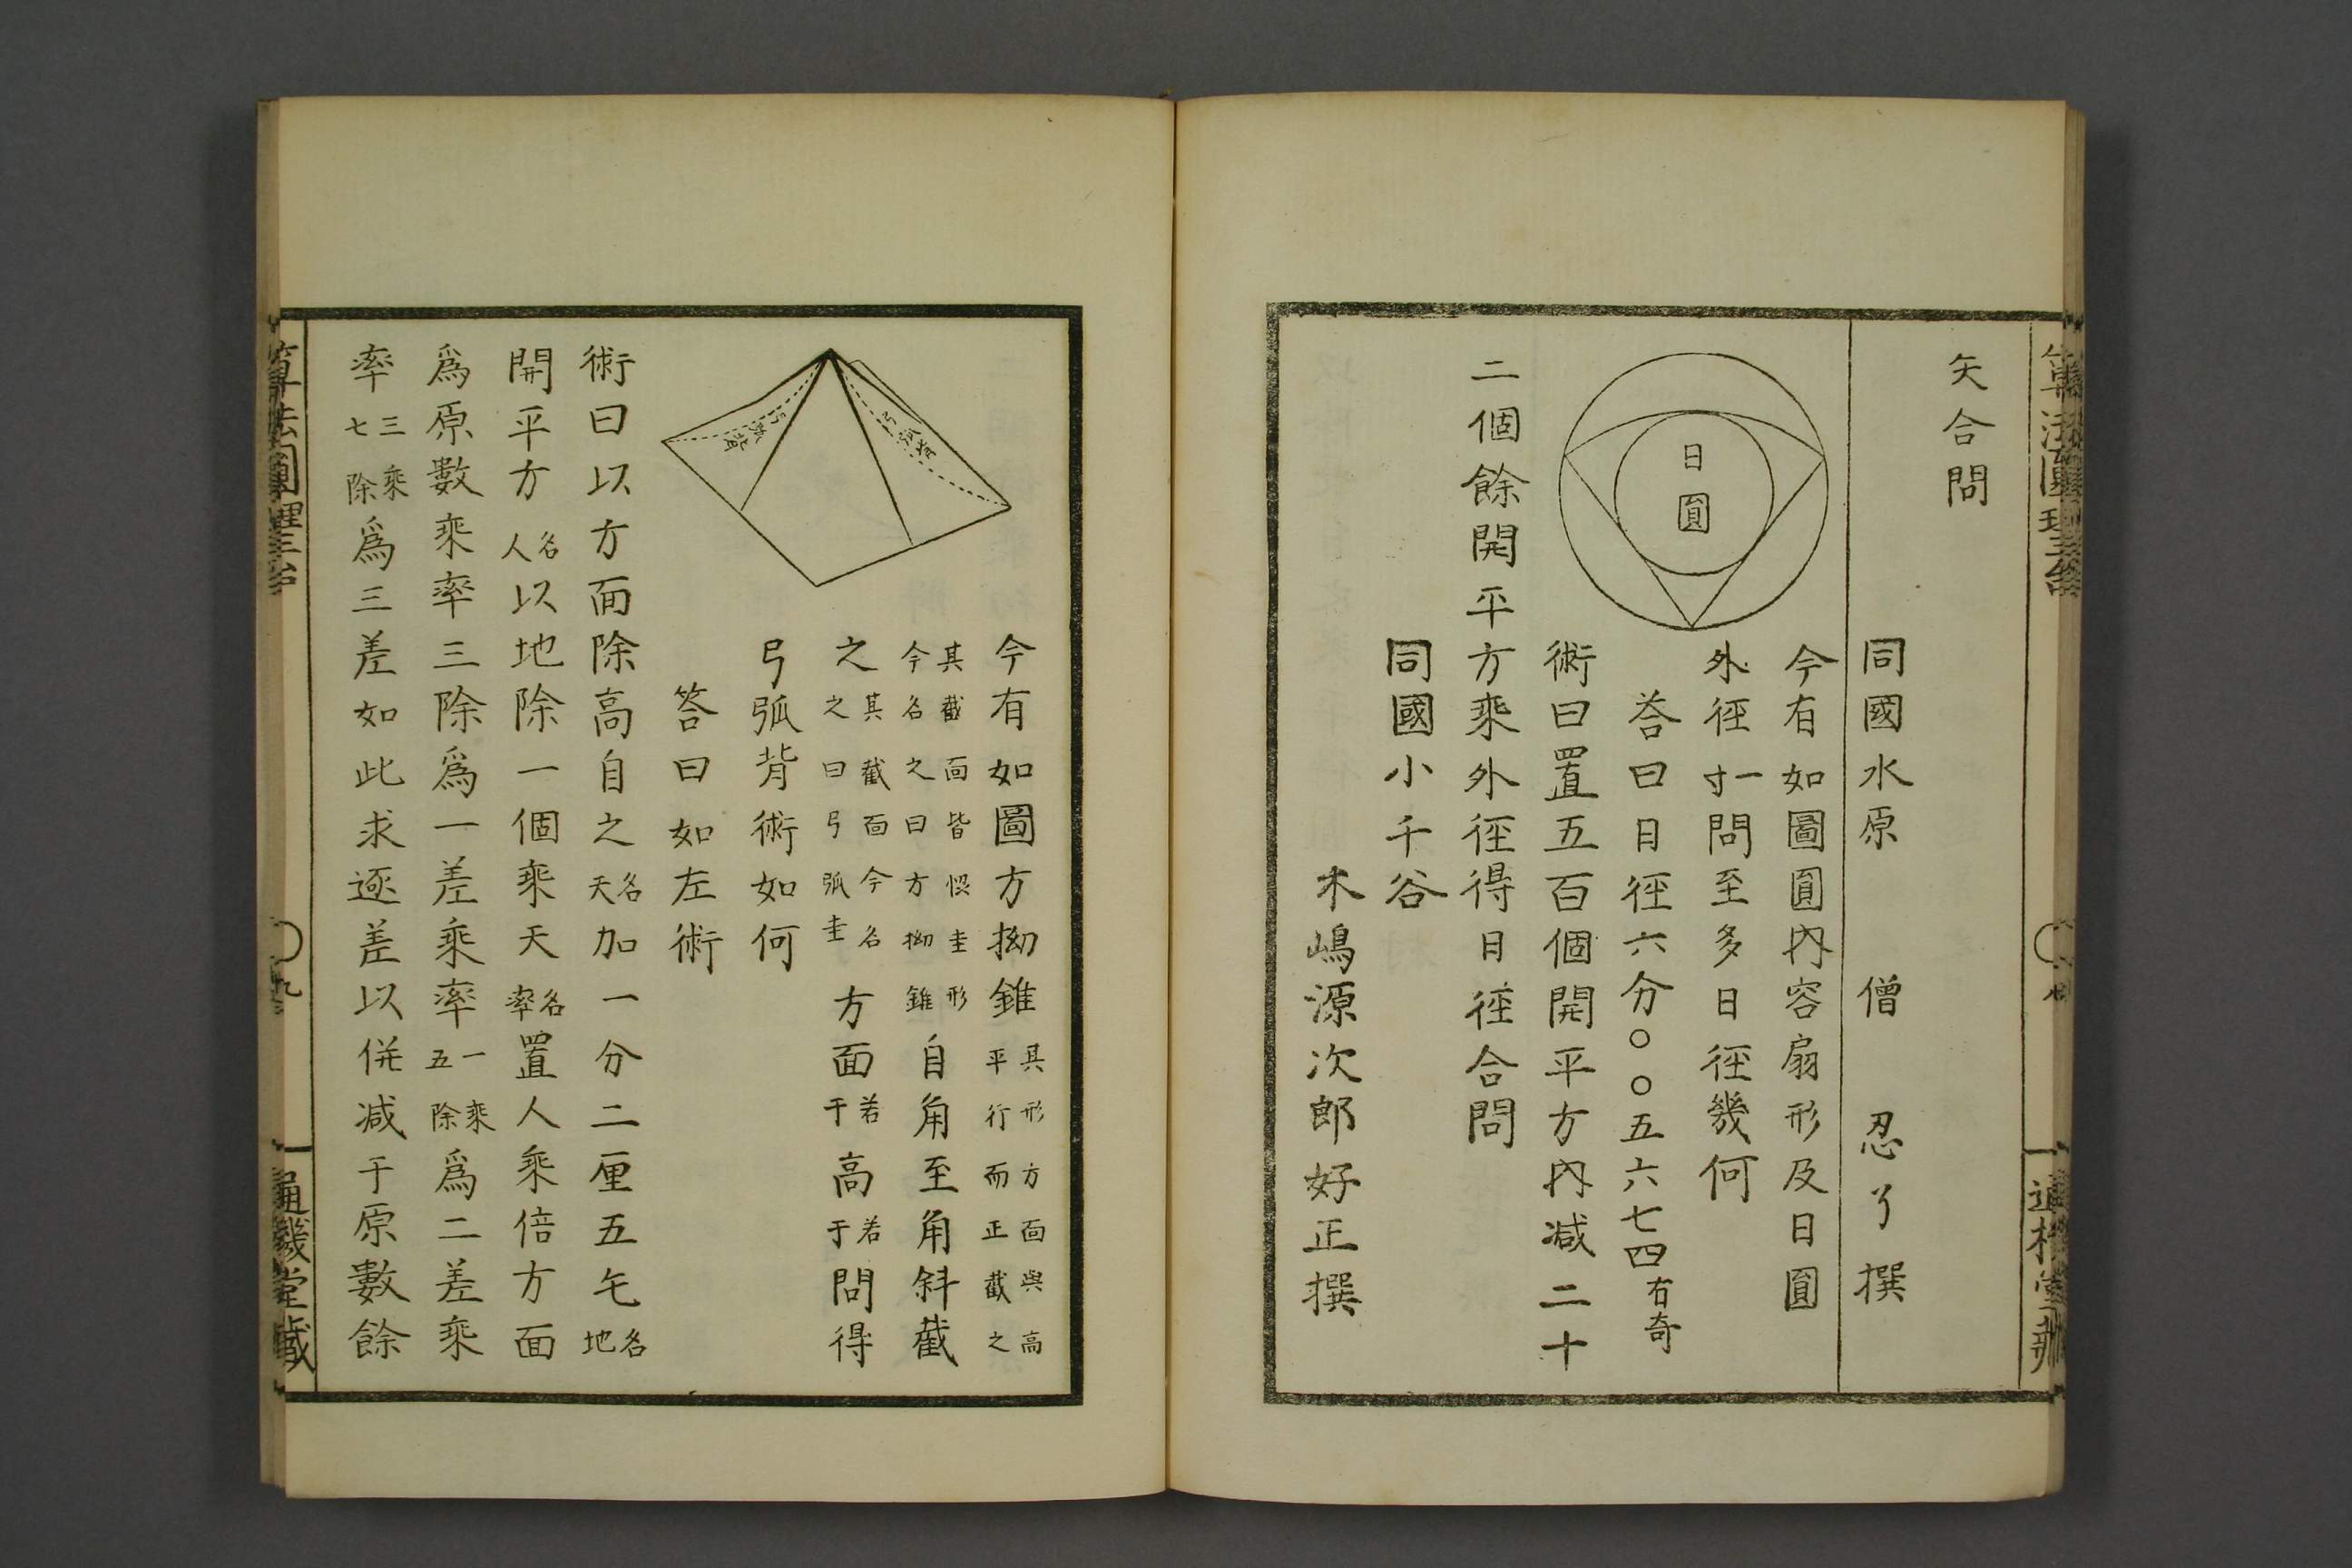 矢合問
同國水原 僧 忍丫撰
今有如圖圓內容扇形及日圓
外徑一寸問至多日徑幾何
荅曰日徑六分〇〇五六七四右奇
術曰置五百個開平方內减二十
二個餘開平方乘外徑得日徑合問
同國小千谷
木嶋源次郎好正撰
日圓
今有如圖方拗錐其形方面與高平行而正截之
其截面皆㥌圭形今名之曰方拗錐自角至角斜截
之其截面今名之曰弓弧圭方面若干高若干問得
弓弧背術如何
答曰如左術
術曰以方面除高自之名天加一分二厘五毛名地
開平方名人以地除一個乘天名率置人乘倍方面
爲原數乘率三除爲一差乘率一乘五除爲二差乘
率三乘七除爲三差如此求逐差以併减于原數餘
弓弧背
弓弧背
算法圓理三台
九
通機堂藏